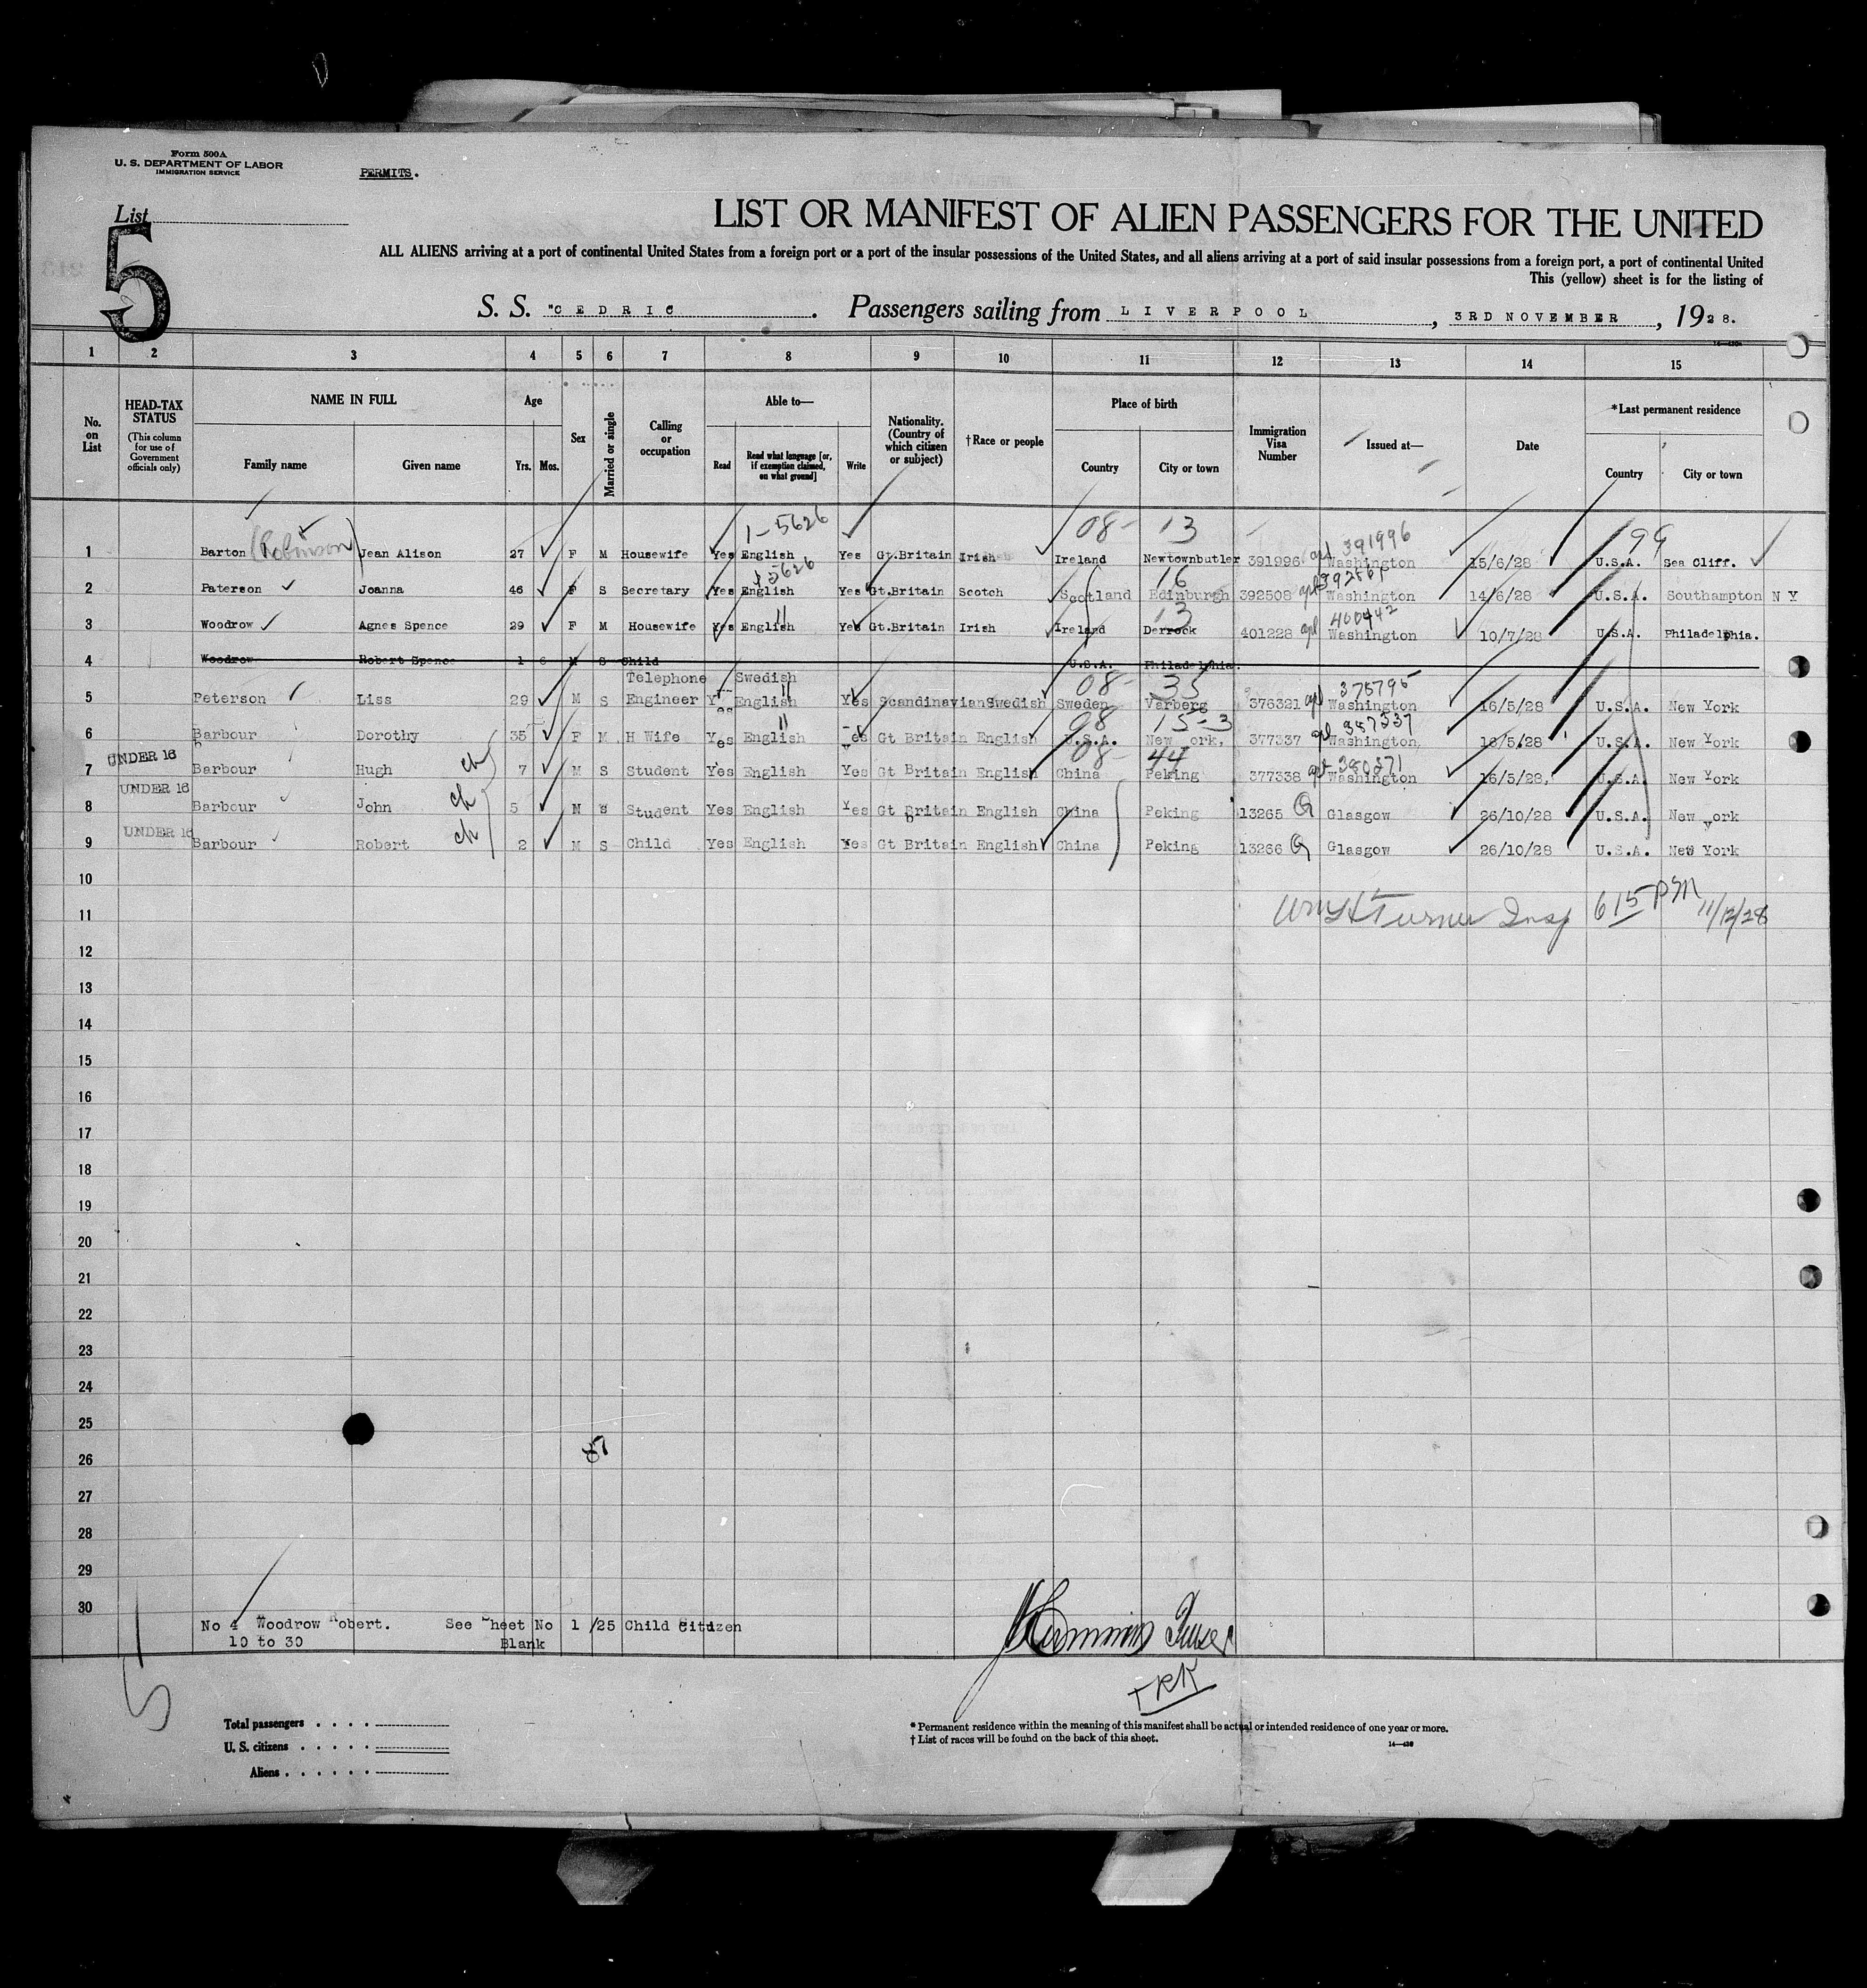 Form 500A
U. S. DEPARTMENT OF LABOR
IMMIGRATION SERVICE
PERMITS.
List
5
LIST OR MANIFEST OF ALIEN PASSENGERS FOR THE UNITED
ALL ALIENS arriving at a port of continental United States from a foreign port or a port of the insular possessions of the United States, and all aliens arriving at a port of said insular possessions from a foreign port, a port of continental United
This (yellow) sheet is for the listing of
S. S. "CEDRIC . Passengers sailing from LIVERPOOL , 3RD NOVEMBER , 1928.
1 2 3 4 5 6 7 8 9 10 11 12 13 14 15
No. on List
HEAD-TAX STATUS (This column for use of Government officials only)
NAME IN FULL
Family name Given name
Age
Yrs. Mos.
Sex
Married or single
Calling or occupation
Able to—
Read Read what language [or, if exemption claimed, on what ground] Write
Nationality. (Country of which citizen or subject)
†Race or people
Place of birth
Country City or town
Immigration Visa Number
Issued at—
Date
*Last permanent residence
Country City or town
1-5626 08- 13 391996 99
1 Barton (Robinson) Jean Alison 27 F M Housewife Yes English Yes Gt.Britain Irish Ireland Newtownbutler 391996 Washington 15/6/28 U.S.A. Sea Cliff.
5626 16
2 Paterson Joanna 46 F S Secretary Yes English Yes Gt.Britain Scotch Scotland Edinburgh 392508 Washington 14/6/28 U.S.A. Southampton N Y
" 13 400442
3 Woodrow Agnes Spence 29 F M Housewife Yes English Yes Gt.Britain Irish Ireland Derrock 401228 Washington 10/7/28 U.S.A. Philadelphia.
4 Woodrow Robert Spence 1 6 M S Child U.S.A. Philadelphia.
Telephone Swedish 08- 35 375795
5 Peterson Liss 29 M S Engineer Yes English Yes Scandinavian Swedish Sweden Varberg 376321 Washington 16/5/28 U.S.A. New York
" 08 15-3 387337
6 Barbour Dorothy 35 F M H Wife Yes English Yes Gt Britain English U.S.A. New York, 377337 Washington, 16/5/28 U.S.A. New York
08- 44 380371
UNDER 16
7 Barbour Hugh ch 7 M S Student Yes English Yes Gt Britain English China Peking 377338 Washington 16/5/28, U.S.A. New York
UNDER 16
8 Barbour John ch 5 M S Student Yes English Yes Gt Britain English China Peking 13265 G Glasgow 26/10/28 U.S.A. New York
UNDER 16
9 Barbour Robert ch 2 M S Child Yes English Yes Gt Britain English China Peking 13266 G Glasgow 26/10/28 U.S.A. New York
10
11 Wm H Turner Insp 615 PM 11/12/28
12
13
14
15
16
17
18
19
20
21
22
23
24
25
26
27
28
29
30
No 4 Woodrow Robert. See Sheet No 1 /25 Child Citizen
10 to 30 Blank
TRK
Total passengers
U. S. citizens
Aliens
* Permanent residence within the meaning of this manifest shall be actual or intended residence of one year or more.
† List of races will be found on the back of this sheet.
14—430